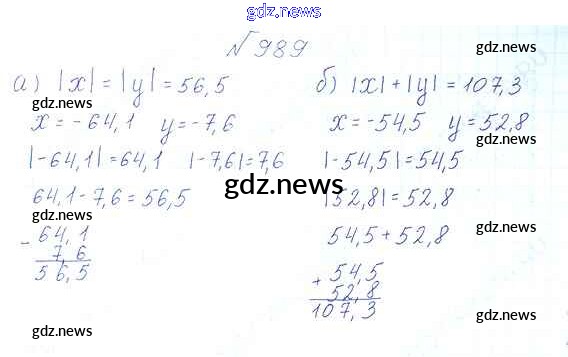 gdz.news
№989
gdz.news
а) |x| = |y| = 56,5
б) |x| + |y| = 107,3
gdz.news
gdz.news
x = -64,1 y = -7,6
x = -54,5 y = 52,8
gdz.news
|-64,1| = 64,1 |-7,6| = 7,6
|-54,5| = 54,5
gdz.news
64,1 - 7,6 = 56,5
|52,8| = 52,8
gdz.news
gdz.news
54,5 + 52,8
gdz.news
- 64,1
7,6
56,5
+ 54,5
52,8
107,3
gdz.news
gdz.news
gdz.news